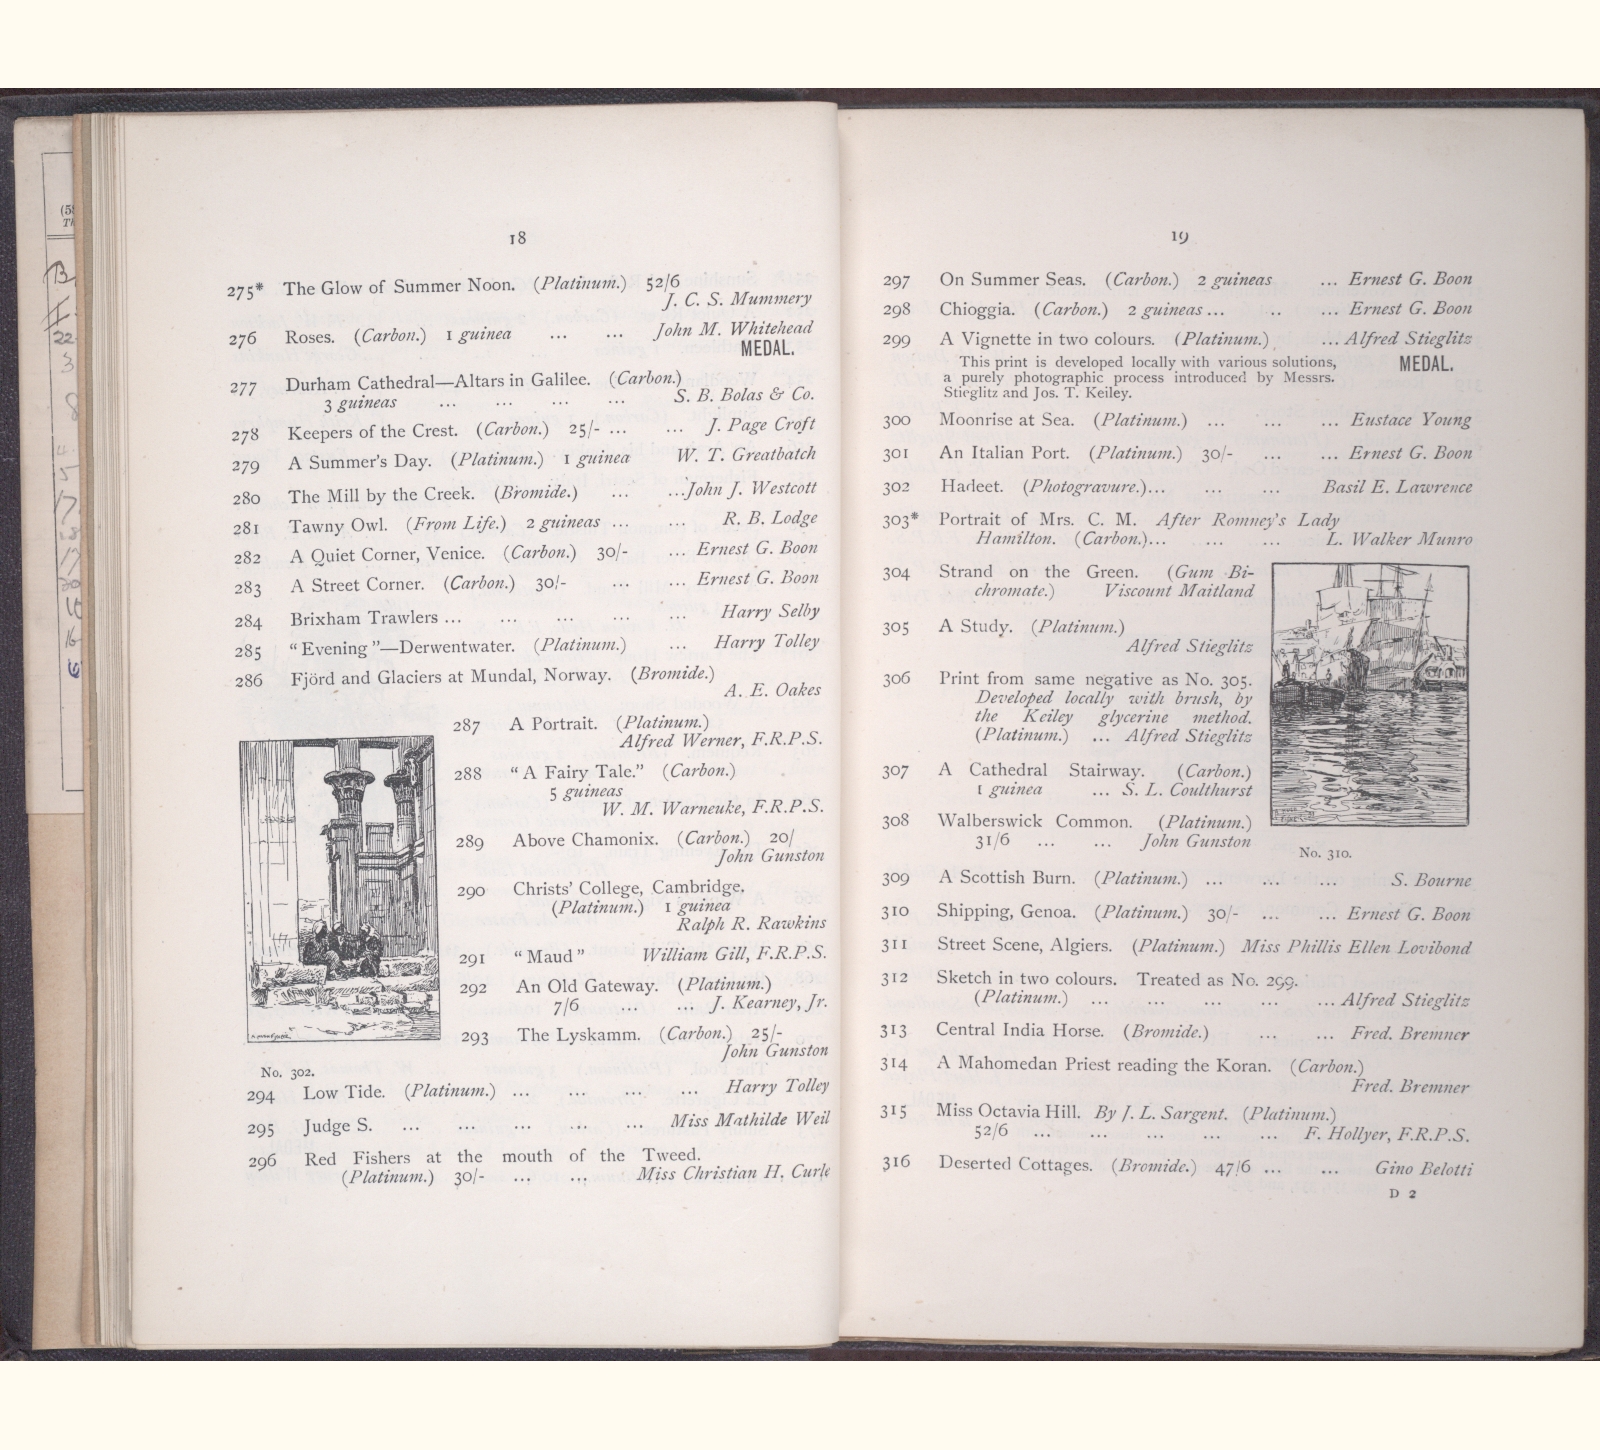 18
275* The Glow of Summer Noon. (Platinum.) 52/6
J. C. S. Mummery
276 Roses. (Carbon.) 1 guinea ... ... John M. Whitehead
MEDAL.
277 Durham Cathedral—Altars in Galilee. (Carbon.)
3 guineas ... ... ... ... S. B. Bolas & Co.
278 Keepers of the Crest. (Carbon.) 25/- ... ... J. Page Croft
279 A Summer's Day. (Platinum.) 1 guinea W. T. Greatbatch
280 The Mill by the Creek. (Bromide.) ... ...John J. Westcott
281 Tawny Owl. (From Life.) 2 guineas ... ... R. B. Lodge
282 A Quiet Corner, Venice. (Carbon.) 30/- ... Ernest G. Boon
283 A Street Corner. (Carbon.) 30/- ... ... Ernest G. Boon
284 Brixham Trawlers ... ... ... ... ... Harry Selby
285 "Evening"—Derwentwater. (Platinum.) ... Harry Tolley
286 Fjörd and Glaciers at Mundal, Norway. (Bromide.)
A. E. Oakes
287 A Portrait. (Platinum.)
Alfred Werner, F.R.P.S.
288 "A Fairy Tale." (Carbon.)
5 guineas
W. M. Warneuke, F.R.P.S.
289 Above Chamonix. (Carbon.) 20/
John Gunston
290 Christs' College, Cambridge.
(Platinum.) 1 guinea
Ralph R. Rawkins
291 "Maud" William Gill, F.R.P.S.
292 An Old Gateway. (Platinum.)
7/6 ... ... J. Kearney, Jr.
293 The Lyskamm. (Carbon.) 25/-
John Gunston
No. 302.
294 Low Tide. (Platinum.) ... ... ... ... Harry Tolley
295 Judge S. ... ... ... ... ... Miss Mathilde Weil
296 Red Fishers at the mouth of the Tweed.
(Platinum.) 30/- ... ... Miss Christian H. Curle
19
297 On Summer Seas. (Carbon.) 2 guineas ... Ernest G. Boon
298 Chioggia. (Carbon.) 2 guineas ... .. ... Ernest G. Boon
299 A Vignette in two colours. (Platinum.) ... Alfred Stieglitz
This print is developed locally with various solutions, MEDAL.
a purely photographic process introduced by Messrs.
Stieglitz and Jos. T. Keiley.
300 Moonrise at Sea. (Platinum.) ... ... ... Eustace Young
301 An Italian Port. (Platinum.) 30/- ... ... Ernest G. Boon
302 Hadeet. (Photogravure.)... ... ... Basil E. Lawrence
303* Portrait of Mrs. C. M. After Romney's Lady
Hamilton. (Carbon.)... ... ... L. Walker Munro
304 Strand on the Green. (Gum Bi-
chromate.) Viscount Maitland
305 A Study. (Platinum.)
Alfred Stieglitz
306 Print from same negative as No. 305.
Developed locally with brush, by
the Keiley glycerine method.
(Platinum.) ... Alfred Stieglitz
307 A Cathedral Stairway. (Carbon.)
1 guinea ... S. L. Coulthurst
308 Walberswick Common. (Platinum.)
31/6 ... ... John Gunston
No. 310.
309 A Scottish Burn. (Platinum.) ... ... ... S. Bourne
310 Shipping, Genoa. (Platinum.) 30/- ... ... Ernest G. Boon
311 Street Scene, Algiers. (Platinum.) Miss Phillis Ellen Lovibond
312 Sketch in two colours. Treated as No. 299.
(Platinum.) ... ... ... ... ... Alfred Stieglitz
313 Central India Horse. (Bromide.) ... ... Fred. Bremner
314 A Mahomedan Priest reading the Koran. (Carbon.)
Fred. Bremner
315 Miss Octavia Hill. By J. L. Sargent. (Platinum.)
52/6 ... ... ... ... ... F. Hollyer, F.R.P.S.
316 Deserted Cottages. (Bromide.) 47/6 ... ... Gino Belotti
D 2